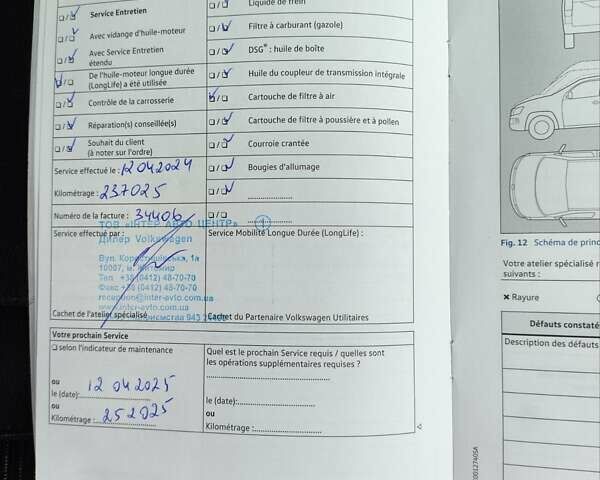 Service Entretien
Avec vidange d'huile-moteur
Avec Service Entretien
étendu
De l'huile-moteur longue durée
(LongLife) a été utilisée
Contrôle de la carrosserie
Réparation(s) conseillée(s)
Souhait du client
(à noter sur l'ordre)
Service effectué le : 12 04 2024
Kilométrage : 237025
Numéro de la facture : 34406
ТОВ «ІНТЕР АВТО ЦЕНТР» 1
Service effectué par :
Дилер Volkswagen
10007, м. Житомир
Тел. +38 (0412) 48-70-70
Факс +38 (0412) 48-70-70
reception@inter-avto.com.ua
www.inter-avto.com.ua
Cachet de l'atelier spécialisé
Liquide de frein
Filtre à carburant (gazole)
DSG® : huile de boîte
Huile du coupleur de transmission intégrale
Cartouche de filtre à air
Cartouche de filtre à poussière et à pollen
Courroie crantée
Bougies d'allumage
Service Mobilité Longue Durée (LongLife) :
Cachet du Partenaire Volkswagen Utilitaires
Votre prochain Service
selon l'indicateur de maintenance
ou
12 04 2025
le (date):
ou
252025
Kilométrage :
Quel est le prochain Service requis / quelles sont
les opérations supplémentaires requises ?
le (date):
ou
Kilométrage :
Fig. 12 Schéma de princ
Votre atelier spécialisé r
suivants :
Rayure
Défauts constaté
Description des défauts